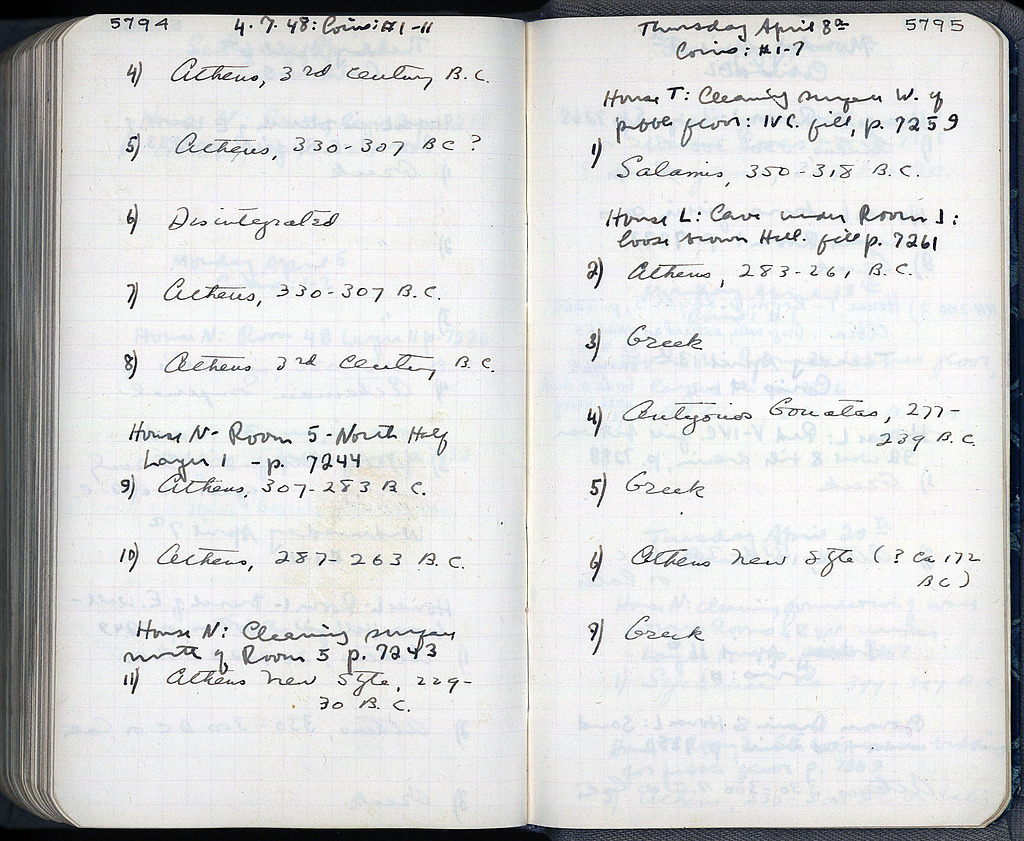 5794
4.7.48: Coins: #1-11
4) Athens, 3rd century B.C.
5) Athens, 330-307 BC ?
6) Disintegrated
7) Athens, 330-307 B.C.
8) Athens 3rd Century B.C.
House N- Room 5-North Half
Layer 1 - p. 7244
9) Athens, 307-283 B C.
10) Athens, 287-263 B.C.
House N: Cleaning surface
north of Room 5 p. 7243
11) Athens New Style, 229-
30 B.C.
Thursday April 8th
5795
Coins: #1-7
House T: Cleaning surface W. of
pebble floor: IVC. fill, p. 7259
1)
Salamis, 350-318 B.C.
House L: Cave under Room I:
loose brown Hell. fill p. 7261
2) Athens, 283-261 B.C.
3) Greek
4) Antigonos Gonatas, 277-
239 B.C.
5) Greek
6) Athens New Style (? Ca 172
BC)
7) Greek